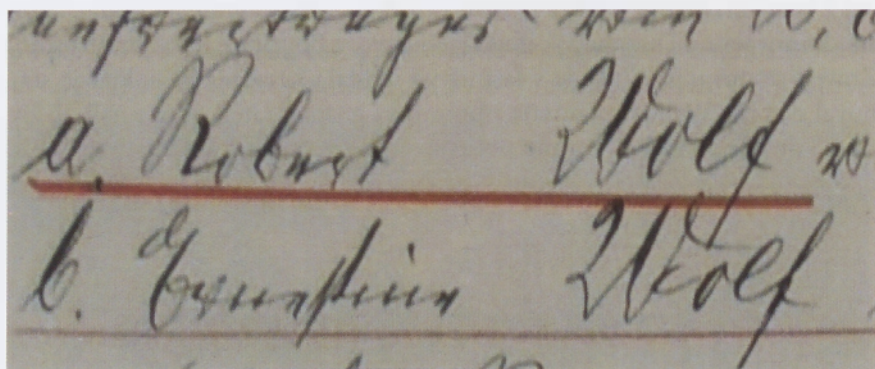 vom
a. Robert Wolf
b. Ernestine Wolf